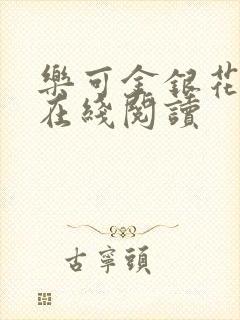 樂可金銀花
在綫閱讀
古寧頭